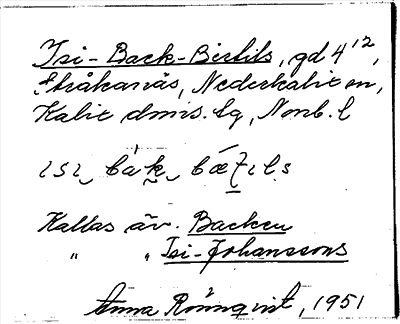 Isi-Back-Bertils, gd 4¹²,
Stråkanäs, Nederkalix sn,
Kalix dmis. lq, Nonb. l
ısı bak bæʒıls
Kallas äv. Backen
" " Isi-Johanssons
Anna Rönnqvist, 1951